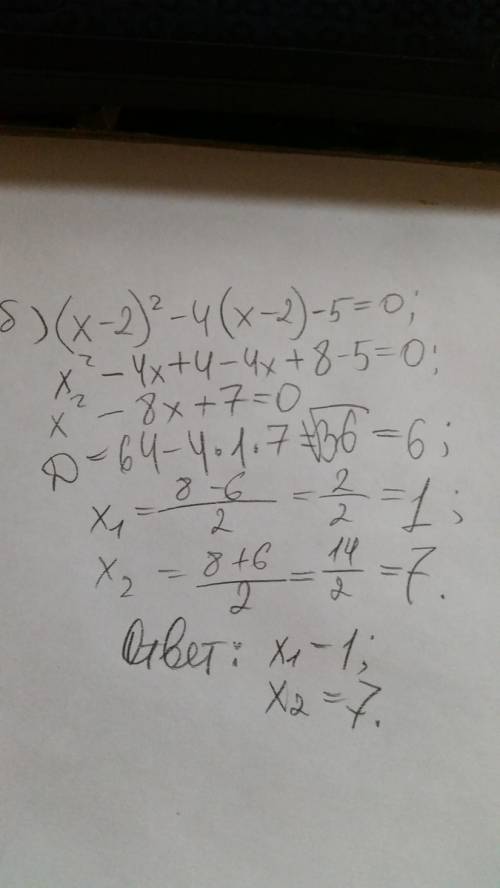 б) (x-2)² - 4(x-2) - 5 = 0;
x² - 4x + 4 - 4x + 8 - 5 = 0;
x² - 8x + 7 = 0
D = 64 - 4·1·7 = √36 = 6;
x₁ = (8-6)/2 = 2/2 = 1;
x₂ = (8+6)/2 = 14/2 = 7.
Ответ: x₁ - 1;
x₂ = 7.